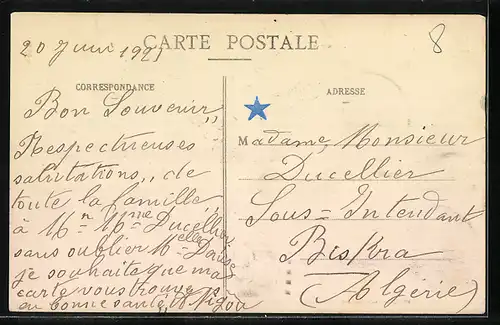 20 Juin 1921
CARTE POSTALE
8
CORRESPONDANCE
ADRESSE
Bon Souvenir,,
Respectueuses
salutations,, de
toute la famille,,
à Mr Mme Ducellier
sans oublier Melle Louise
je souhaite que ma
carte vous trouve
en bonne santé,,
Madame, Monsieur
Ducellier
Sous=Intendant
Biskra
(Algérie)